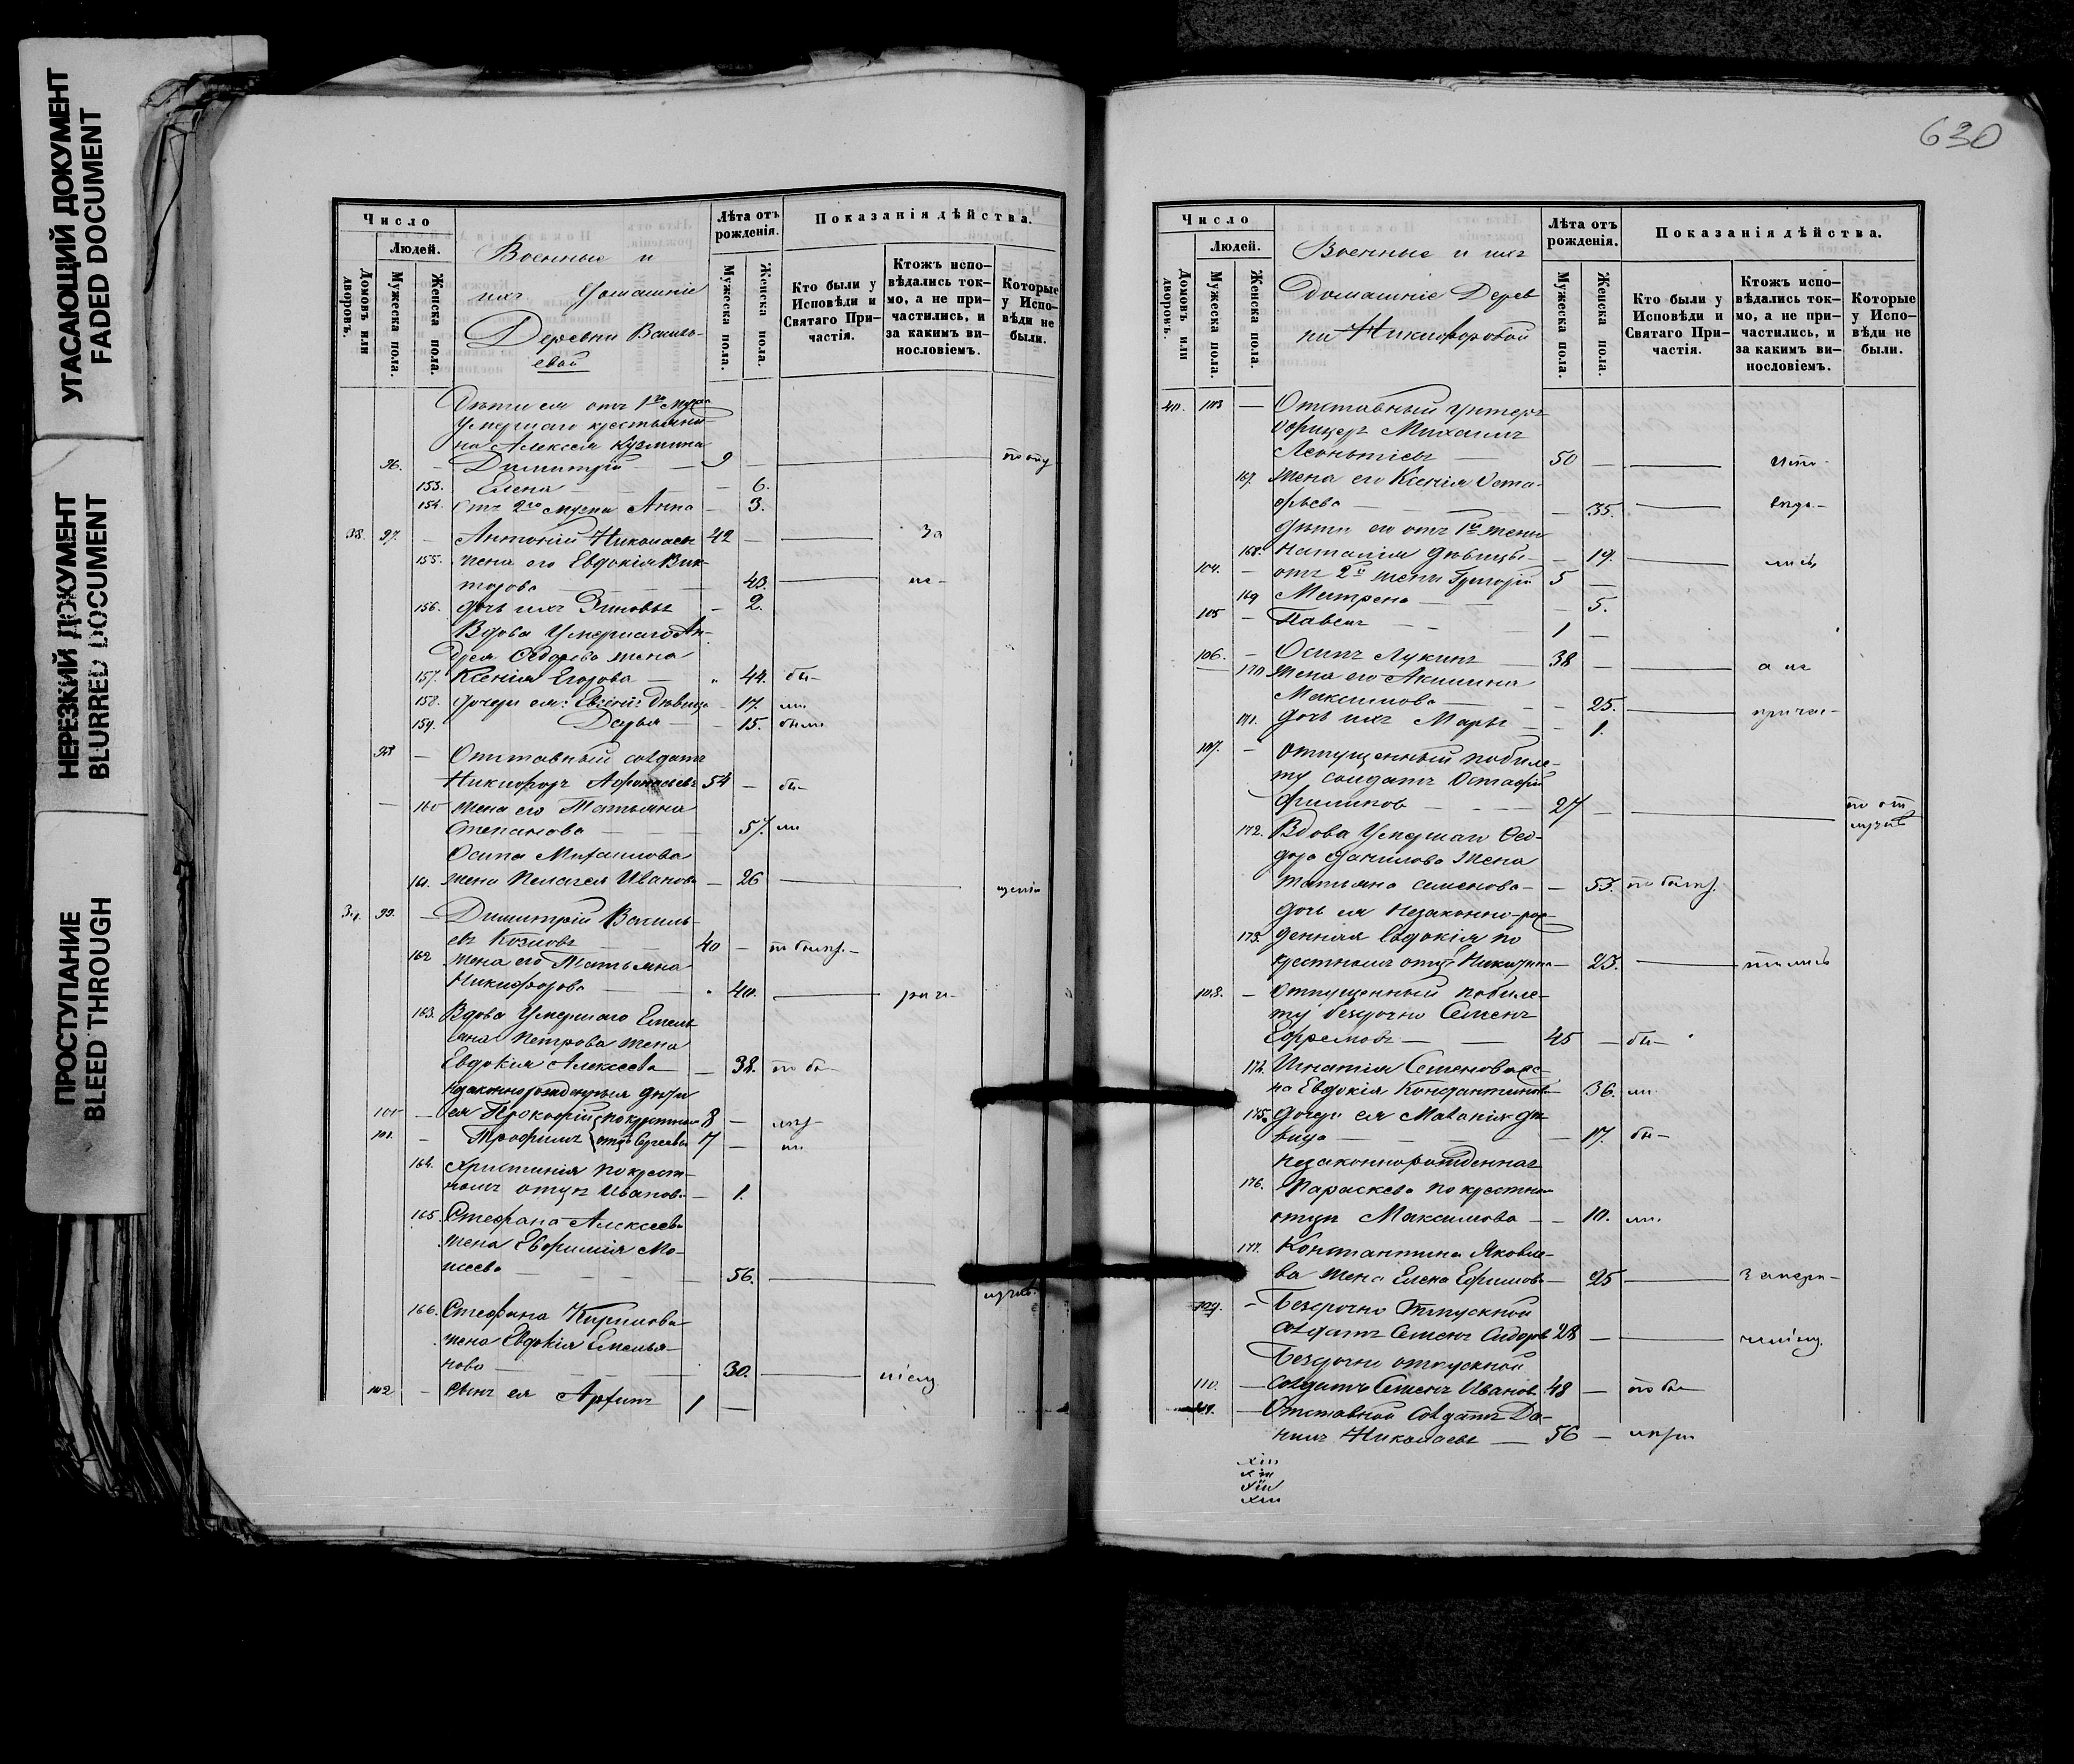 УГАСАЮЩИЙ ДОКУМЕНТ
FADED DOCUMENT
НЕРЕЗКИЙ ДОКУМЕНТ
BLURRED DOCUMENT
ПРОСТУПАНИЕ
BLEED THROUGH
Число
Людей.
Домовъ или дворовъ.
Мужеска пола.
Женска пола.
Военные и
ихъ Домашніе
Деревни Василь-
евой
Лѣта отъ рожденія.
Мужеска пола.
Женска пола.
Показанія дѣйства.
Кто были у Исповѣди и Святаго При-частія.
Ктожъ испо-вѣдались ток-мо, а не при-частились, и за какимъ ви-нословіемъ.
Которые у Испо-вѣди не были.
Дѣти ея отъ 1го мужа
Умершаго крестьяни-
на Алексея Кузмина
96. — Димитрій — 9 —
153. Елена — 6.
154. Отъ 2го мужа Анна — 3.
38. 97. — Антоній Николаевъ 42 — За
155. Жена его Евдокія Вик-
торова — 40.
156. Дочь ихъ Зиновья — 2.
Вдова Умершаго Ан-
дрея Ѳедорова жена
157. Ксенія Егорова — 44. бы-
158. Дочери ея: Евгенія Дѣвица — 17. ли
159. Дарья — 15. были
98 — Отставный солдатъ
Никифоръ Афонасьевъ 54 — бы-
160 Жена его Татьяна
Степанова — 57. ли
Осипа Михаилова
161. жена Пелагея Иванова — 26
39. 99. — Димитрій Василь-
евъ Козловъ 40 —
162 Жена его Татьяна
Никифорова — 40.
163. Вдова Умершаго Емель
яна Петрова жена
Евдокія Алексеева — 38.
незаконнорожденныя дѣти
100 — ея Прокофій по крестному 8 —
101. — Трофимъ отцу Сергеевы 7 —
164. Христинія по крест-
ному отцу Иванова — 1.
165. Стефана Алексеева
жена Евфимія Мо-
исеева — 56.
166. Стефана Кирилова
жена Евдокія Емелья-
нова — 30.
102 — сынъ ея Артемъ 1 —
630
Число
Людей.
Домовъ или дворовъ.
Мужеска пола.
Женска пола.
Военные и ихъ
Домашніе Дерев
ни Никифоровой
Лѣта отъ рожденія.
Мужеска пола.
Женска пола.
Показанія дѣйства.
Кто были у Исповѣди и Святаго При-частія.
Ктожъ испо-вѣдались ток-мо, а не при-частились, и за какимъ ви-нословіемъ.
Которые у Испо-вѣди не были.
40. 103 — Отставный унтеръ
Офицеръ Михаилъ
Леонтіевъ 50 — испо-
167. Жена его Ксенія Оста-
фьева — 35. веда-
Дѣти его отъ 1й жены
168. Наталія дѣвица — 19. лись
104. — отъ 2й жены Григорій 5 —
169 Матрена — 5.
105 — Павелъ 1 —
106. — Осипъ Лукинъ 38 — а не
170 Жена его Акилина
Максимова — 25. причас-
171. Дочь ихъ Марья — 1.
107. — Отпущенный по биле-
ту солдатъ Остафій
Филиповъ 27 — по от
лучкѣ
172. Вдова Умершаго Ѳео-
дора Данилова Жена
Татьяна Семенова — 53.
Дочь ея Незаконно-рож-
173. денная Евдокія по
крестному отцу Никитина — 23. тились
108. — Отпущенный по биле-
ту безсрочно Семенъ
Ефремовъ — 45 — бы-
174. Игнатія Семенова же-
на Евдокія Константинова 36. ли
175. Дочери ея Маланія дѣ-
вица — 17. бы-
Незаконнорожденная
176. Параскева по крестному
отцу Максимова — 10. ли.
177. Константина Яковле-
ва жена Елена Ефимова — 25
109. — Безсрочно Отпускной
солдатъ Семенъ Сидоровъ 28 —
Безсрочно отпускной
110. — солдатъ Семенъ Ивановъ 48 —
111. — Отставной Солдатъ Да-
нилъ Николаевъ — 56 —